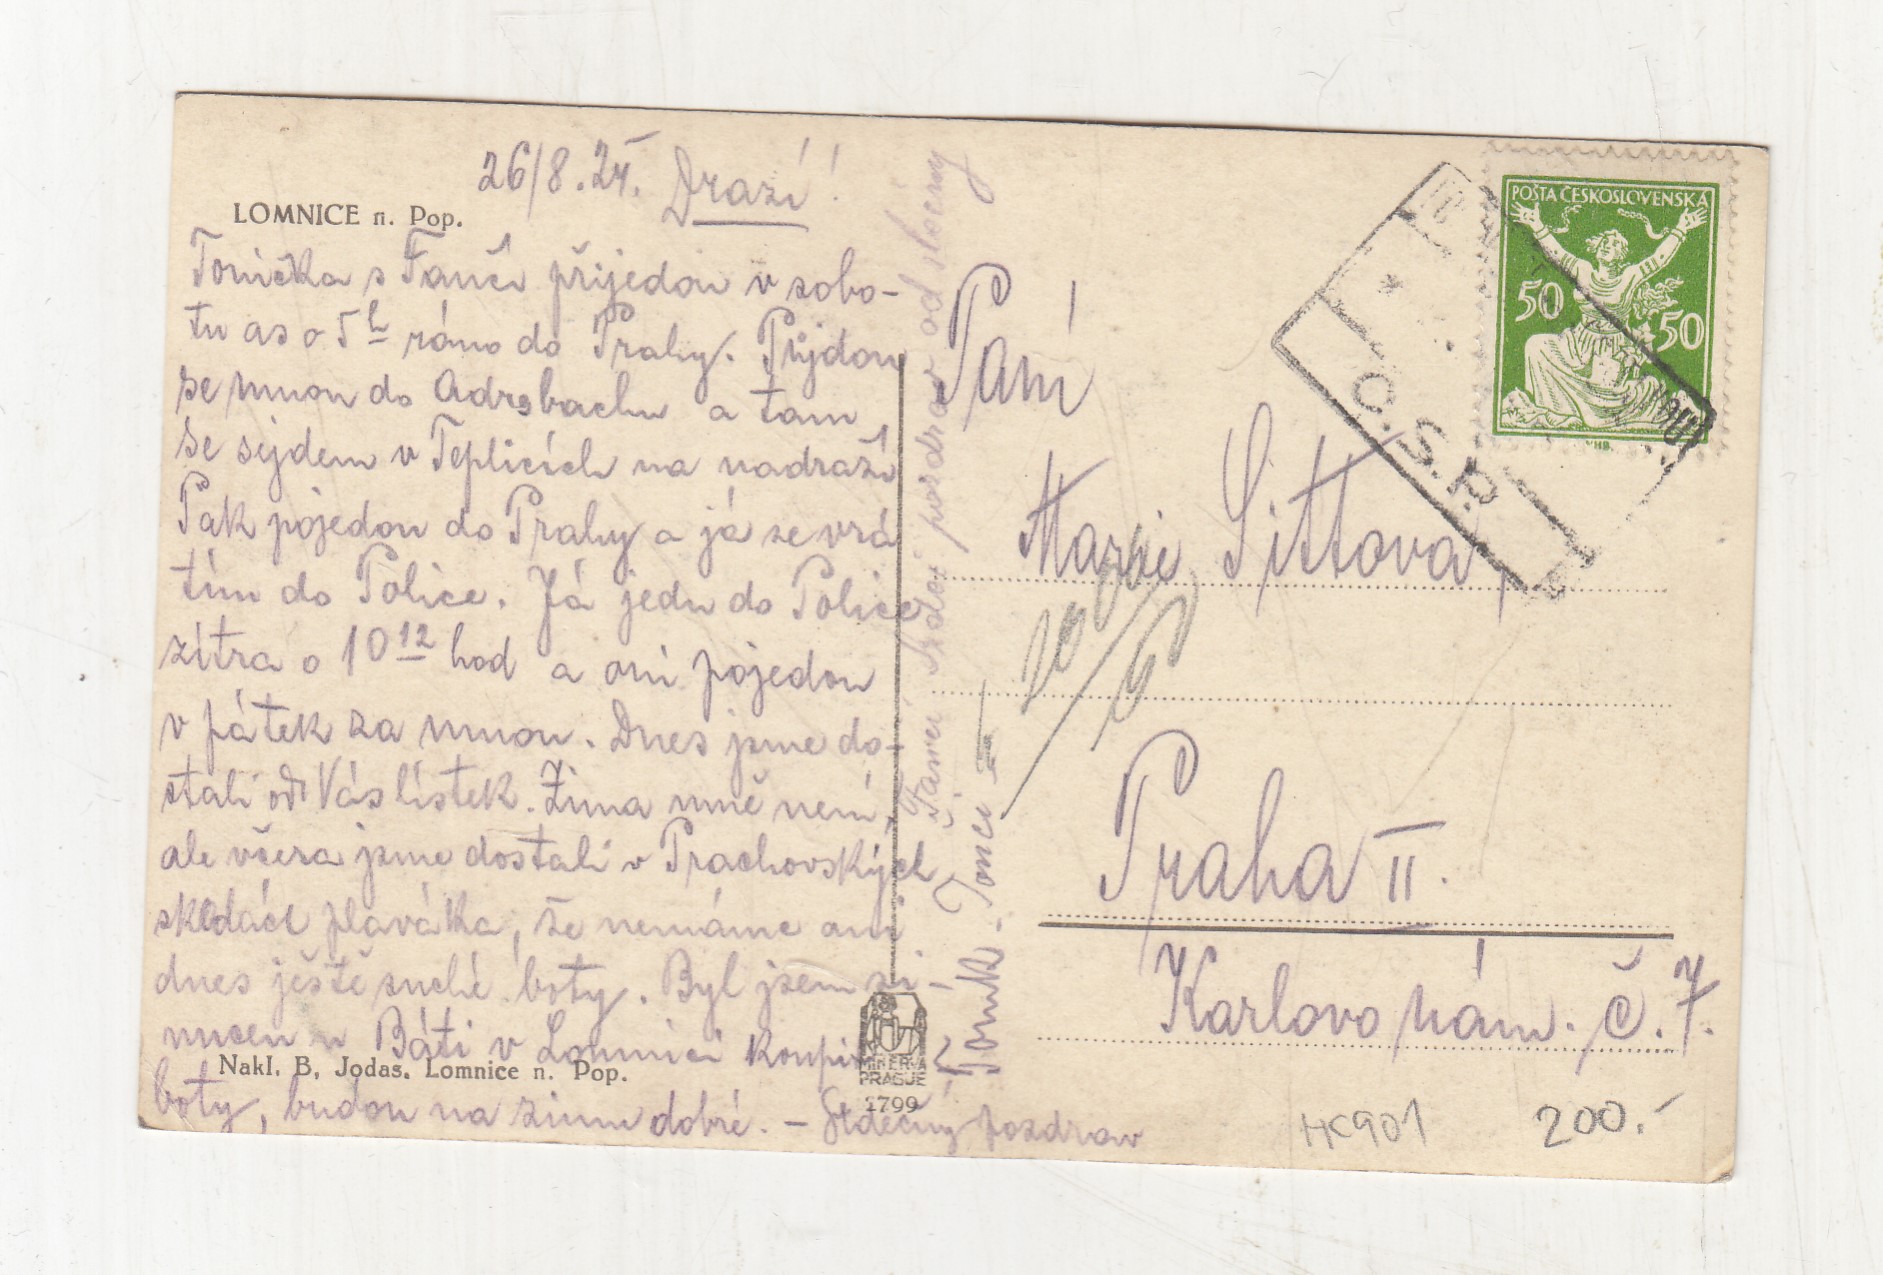 LOMNICE n. Pop.
26/8.24. Drazí!
Tonička s Fančí přijedou v sobo-
tu as o 5h ráno do Prahy. Půjdou
se mnou do Adrsbachu a tam
se sejdem v Teplicích na nadraží
Pak pojedou do Prahy a já se vrá
tím do Police. Já jedu do Police
zítra o 10 12 hod a oni pojedou
v pátek za mnou. Dnes jsme do-
stali od Vás lístek. Zima mně není,
ale včera jsme dostali v Prachovských
skalách plaváka, že nemáme ani
dnes ještě suché boty. Byl jsem při-
nucen u Báti v Lomnici koupit
boty, budou na zimu dobré. – Srdečný pozdrav
Toník. Tonči
Fanči pozdrav od slečny
Nakl. B. Jodas. Lomnice n. Pop.
MINERVA
PRAGUE
1799
POŠTA ČESKOSLOVENSKÁ
50 50
Č.S.P.
Paní
Marie Sittova,
Praha II.
Karlovo nám. č. 7.
HC901
200.-